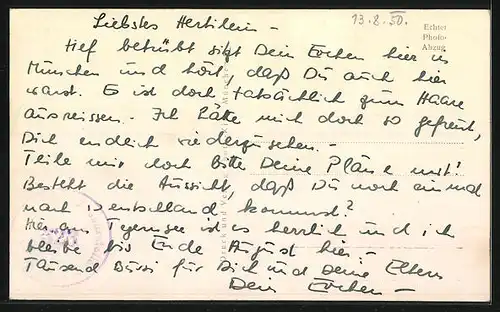 Liebstes Hertilein -
13.8.50.
Echte
Photo-
Abzug
tief betrübt sitzt Dein Evchen hier in
München und hört, daß Du auch hier
warst. Es ist doch tatsächlich zum Haare
ausreissen. - Ich hätte mich doch so gefreut,
Dich endlich wiederzusehen. -
Teile mir doch bitte Deine Pläne mit!
Besteht die Aussicht, daß Du noch einmal
nach Deutschland kommst?
Hier am Tegernsee ist es herrlich und ich
bleibe bis Ende August hier. -
Tausend Bussi für Dich und Deine Eltern
Dein Evchen -